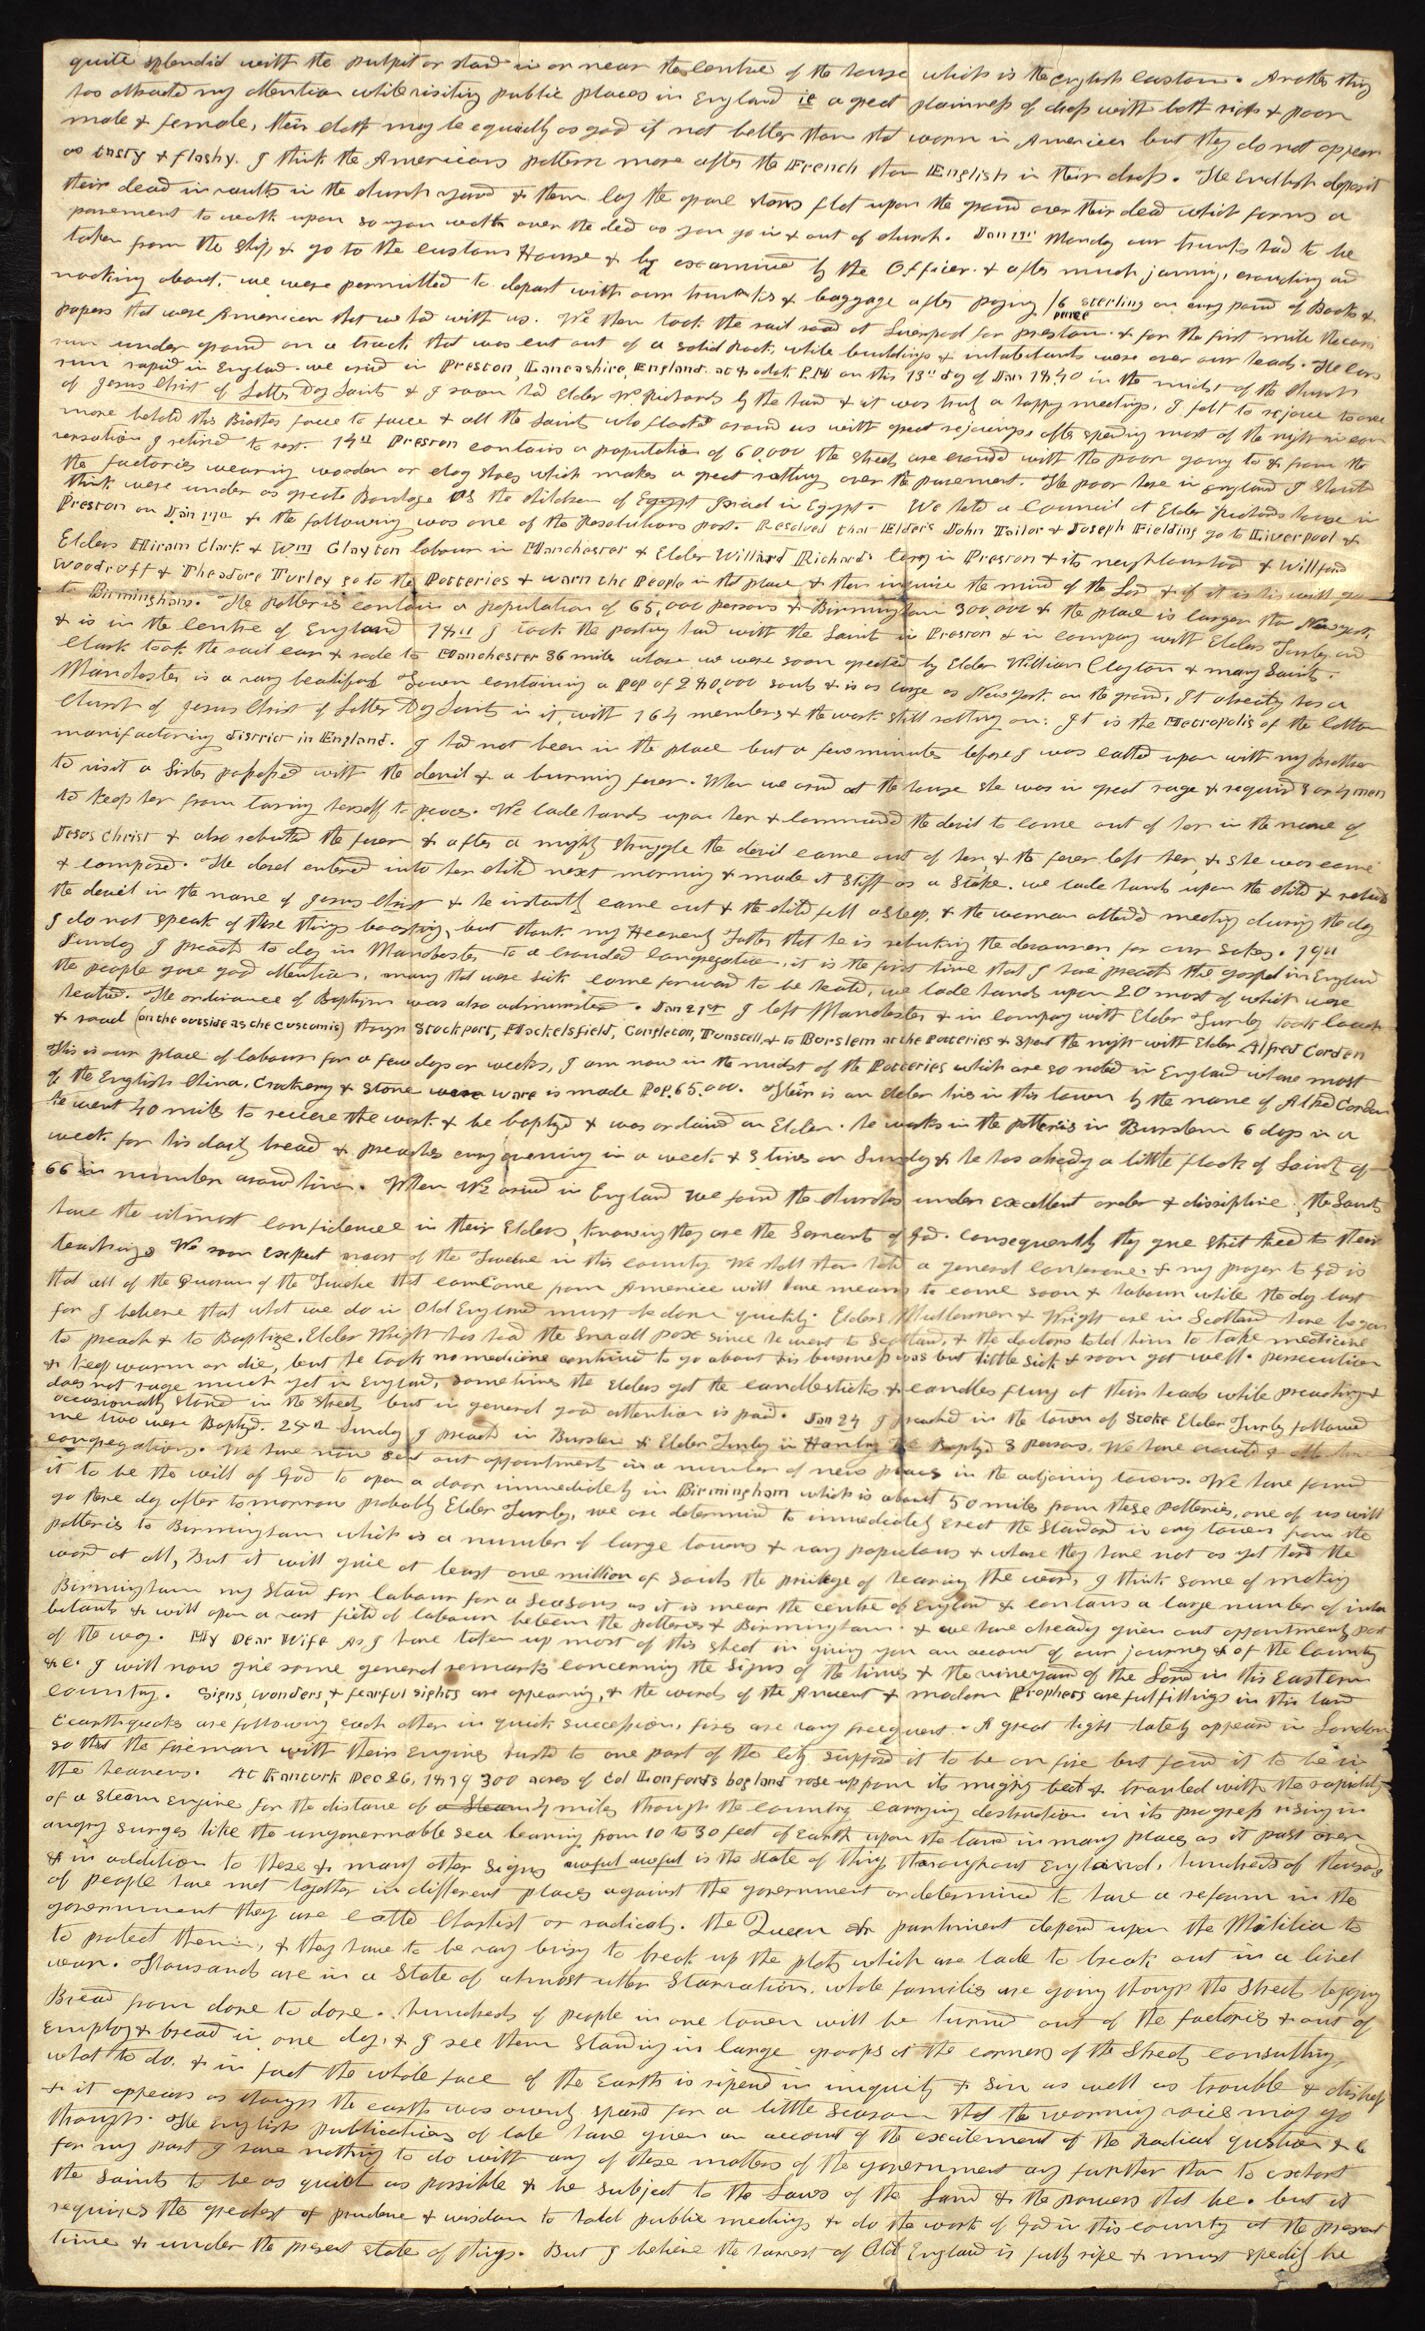 quite splendid with the pulpit or stand in or near the centre of the house which is the english custom. Another thing
has attracted my attention while visiting public places in England is a great plainness of dress with both rich & poor
male & female, their cloth may be equally as good if not better than that worn in America but they do not appear
as tasty & flashy. I think the Americans pattern more after the French than English in their dress. The English deposit
their dead in vaults in the church yard & then lay the grave stones flat upon the ground over their dead which forms a
pavement to walk upon so you walk over the dead as you go in & out of church. Jan 13th Monday our trunks had to be
taken from the ship & go to the custom House & be examined by the Officer. & after much jaming, crouding and
nocking about, we were permitted to depart with our trunks & baggage after paying /6 pence sterling on evry pound of Books &
papers that were American that we had with us. We then took the rail road at Liverpool for preston. & for the first mile the cars
run under ground on a track that was cut out of a solid rock, while buildings & inhabitants were over our heads. The cars
run rapid in England. we arived in Preston, Lancashire, England. at 4 oclock P.M on this 13th day of Jan 1840 in the midst of the Church
of Jesus Christ of Latter Day Saints & I soon had Elder Wm Richards by the hand & it was truly a happy meeting. I felt to rejoice to once
more behold this Brother face to face & all the Saints who flocked around us with great rejoicings, after spending most of the night in con
versation I retired to rest. 14th Preston contains a population of 60,000 the streets are crouded with the poor going to & from the
the factories wearing wooden or clog shoes which makes a great rattling over the pavement. The poor here in England I should
think were under as great Bondage as the children of Egypt Israel in Egypt. We held a council at Elder Richards house in
Preston on Jan 17th & the following was one of the Resolutions past. Resolved that Elders John Tailor & Joseph Fielding go to Liverpool &
Elders Hiram Clark & Wm Clayton labour in Manchester & Elder Willard Richards in Preston & its neighbourhood & Willford
Woodruff & Theodore Turley go to the Potteries & warn the People in that place & then inquire the mind of the Lord & if it is his will go
to Birmingham. The potteries contain a population of 65,000 persons & Birmingham 300,000 & the place is larger than New york.
& is in the centre of England 18th I took the parting hand with the Saints in Preston & in company with Elders Turley and
Clark took the rail cars & rode to Manchester 36 miles whare we were soon greeted by Elder William Clayton & many Saints.
Manchester is a vary beautiful Town containing a pop of 280,000 souls & is as large as New york on the ground, It already has a
Church of Jesus Christ of Latter Day Saints in it, with 164 members & the work still rolling on. It is the Metropolis of the Cotton
manifactoring district in England. I had not been in the place but a few minutes before I was called upon with my Brother
to visit a Sister possessed with the devil & a burning fever. When we arived at the house she was in great rage & required 3 or 4 men
to keep her from taring herself to peaces. We lade hands upon her & commanded the devil to come out of her in the name of
Jesus Christ & also rebuked the fever & after a mighty struggle the devil came out of her, & the fever left her, & she was came
& composed. The devel entered into her child next morning & made it stiff as a stake. we lade hands upon the child & rebuked
the devil in the name of Jesus Christ & he instantly came out & the child fell asleep, & the woman attended meeting during the day
I do not speak of these things boasting, but thank my Heavenly Father that he is rebuking the devourer for our sakes. 19th
Sunday I preachd to day in Manchester to a crouded congregation, it is the first time that I have preachd the gospel in England
the people gave good attention, many that were sick come forward to be healed, we lade hands upon 20 most of which were
healed. The ordinance of Baptism was also administered. Jan 21st I left Manchester & in company with Elder Turley took Coach
& road (on the outside as the custom is) through Stockport, Mackelsfield, Congleton, Tunstell, & to Burslem at the Potteries & spent the night with Elder Alfred Corden
This is our place of labour for a few days or weeks, I am now in the midst of the Potteries which are so noted in England whare most
of the English China, Crockery & stone were ware is made Pop. 65.000. Their is an Elder lives in this town by the name of Alfred Cordon
he went 40 miles to recieve the work & be baptized & was ordained an Elder. he works in the potteries in Burslem 6 days in a
week for his daily bread & preaches evry evening in a week & 3 times on Sunday & he has already a little flock of Saints of
66 in number around him. When We arived in England we found the churches under excellent order & dissipline, the Saints
have the utmost confidence in their Elders, knowing they are the Servants of God. Consequently they give strict heed to their
teachings We soon expect most of the Twelve in this country We shall then hold a general Conference. & my prayer to God is
that all of the Quorum of the Twelve that can Come from America will have means to come soon & labour while the day last
for I believe that what we do in Old England must be done quickly. Elders Mulliner & Wright are in Scotland have began
to preach & to Baptize. Elder Wright has had the small pox since he went to Scotland, & the doctors told him to take medicine
& keep warm or die, but he took no medicine continued to go about his business was but little sick & soon got well. persecution
does not rage much yet in England, sometimes the Elders got the candlesticks & candles flung at their heads while preaching &
occasionally stoned in the streets but in general good attention is paid. Jan 24 I preached in the town of Stoke Elder Turley followed
me two were Baptized. 25th Sunday I preachd in Burslem & Elder Turley in Hanley We Baptized 3 persons. We have crouded &
congregations. We have now sent out appointments in a number of new places in the adjoining towns. We have found
it to be the will of God to open a door immediately in Birmingham which is about 50 miles from these potteries, one of us will
go there day after tomorrow probably Elder Turley, we are determined to immediately erect the standard in evry town from the
potteries to Birmingham which is a number of large towns & vary populous & whare they have not as yet heard the
word at all, But it will give at least one million of souls the privilege of hearing the word, I think some of making
Birmingham my stand for labour for a season as it is near the centre of England & contains a large number of inha
bitants & will open a vast field of labour between the potteries & Birmingham. & we have already given out appointments part
of the way. My Dear Wife As I have taken up most of this sheet in giving you an account of our journey & of the Country
&c. I will now give some general remarks concerning the signs of the times & the vineyard of the Lord in this Eastern
country. Signs, wonders, & fearful sights are appearing, & the words of the Ancient & modern Prophets are fulfilling in this land
Eearthquakes are following each other in quick succession, fires are vary freequent. A great light lately appeared in London
so that the fireman with their engines rushed to one part of the city supposed it to be on fire but found it to be in
the heavens. At Kanturk Dec 26, 1839 300 acres of Col Lonfords bogland rose up from its mighty bed & traveled with the rapidity
of a steam engine for the distance of a Steam miles through the country carrying destruction in its progress rising in
angry surges like the ungovernable sea leaving from 10 to 30 feet of Earth upon the land in many places as it past over
& in addition to these & many other signs awful awful is the state of things throughout England, hundreds of thousands
of people have met together in different places against the government or determined to have a reform in the
government they are called Chartist or radicals. the Queen & parliment depend upon the Militia to
to protect them, & they have to be vary busy to break up the plots which are lade to break out in a civel
wear. Thousands are in a State of almost utter Starvation. whole families are going through the Streets begging
Bread from dore to dore. hundreds of people in one town will be turned out of the factories & out of
employ & bread in one day. & I see them standing in large groops at the corners of the Streets consulting
what to do. & in fact the whole face of the Earth is ripend in iniquity & sin as well as trouble & distress
& it appears as though the earth was ownly spared for a little season that the warning voice may go
through. The English publications of late have given an account of the excitement of the Radical question &c
for my part I have nothing to do with any of these matters of the government any further than to exhort
the Saints to be as quiet as possible & be subject to the Laws of the Land & the powers that be. but it
requires the greatest of prudence & wisdom to hold public meetings & do the work of God in this country at the present
time & under the present state of things. But I believe the harvest of Old England is fully ripe & must speedily be